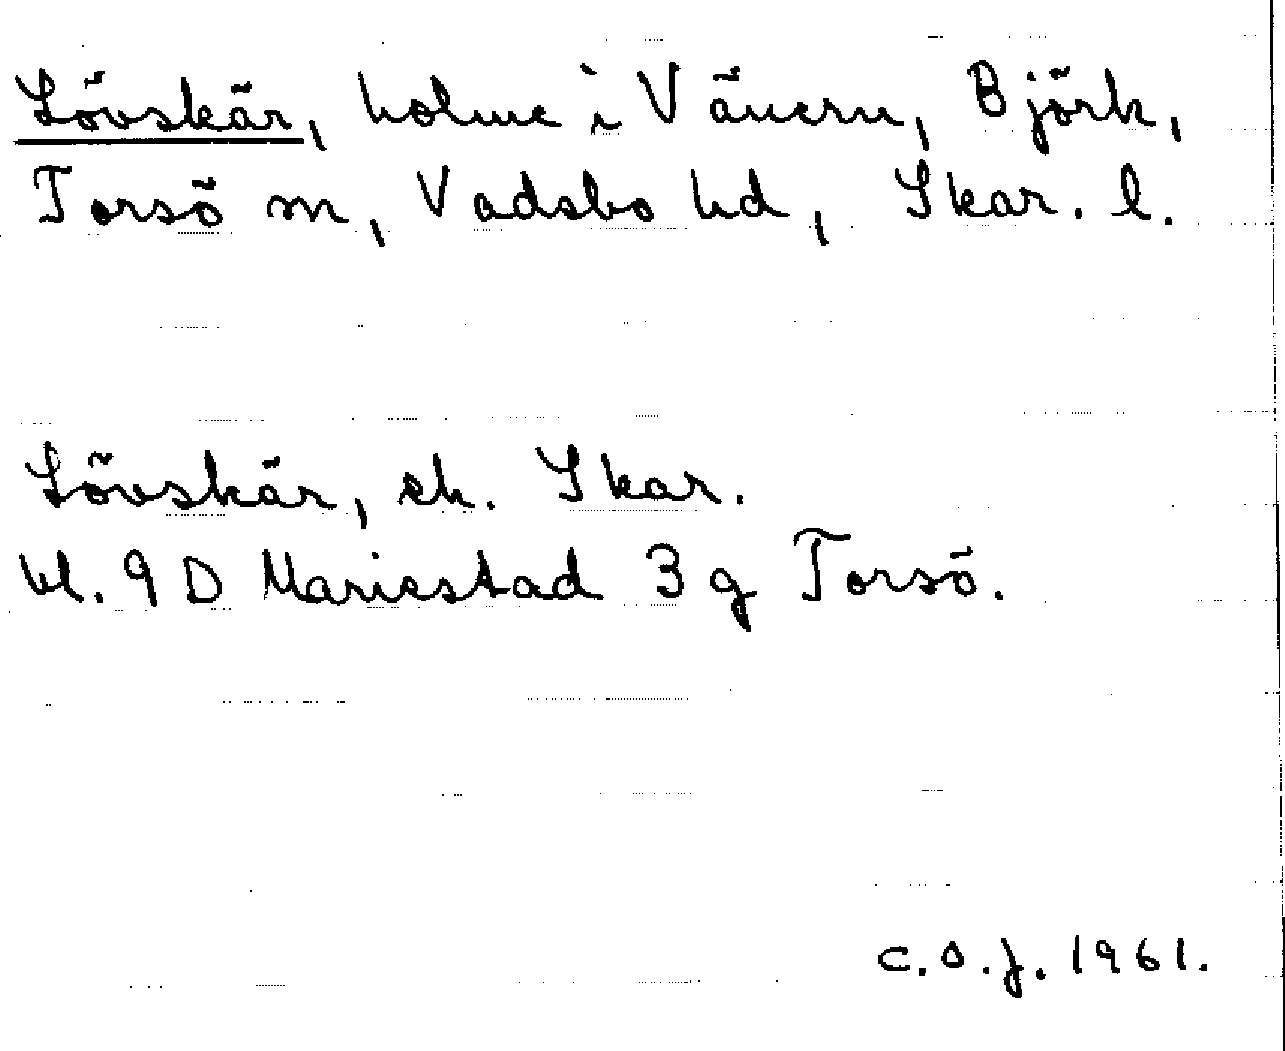 Lövskär, holme i Vänern, Björk,
Torsö sn, Vadsbo hd, Skar. l.
Lövskär, ek. Skar.
bl. 9 D Mariestad 3 g Torsö.
C.O.J. 1961.